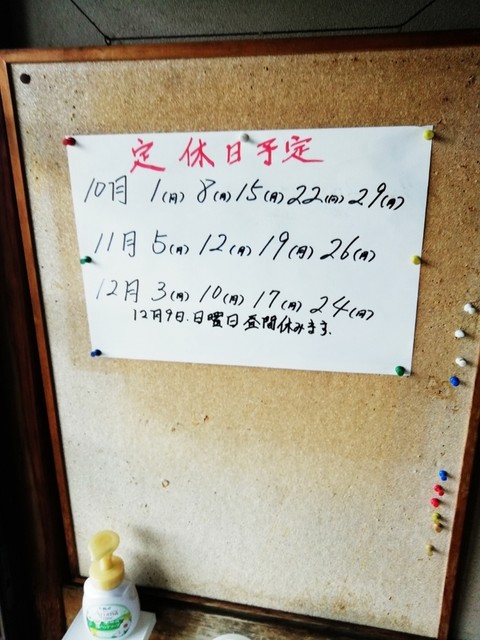 定休日予定
10月 1(月) 8(月) 15(月) 22(月) 29(月)
11月 5(月) 12(月) 19(月) 26(月)
12月 3(月) 10(月) 17(月) 24(月)
12月9日.日曜日昼間休みます.